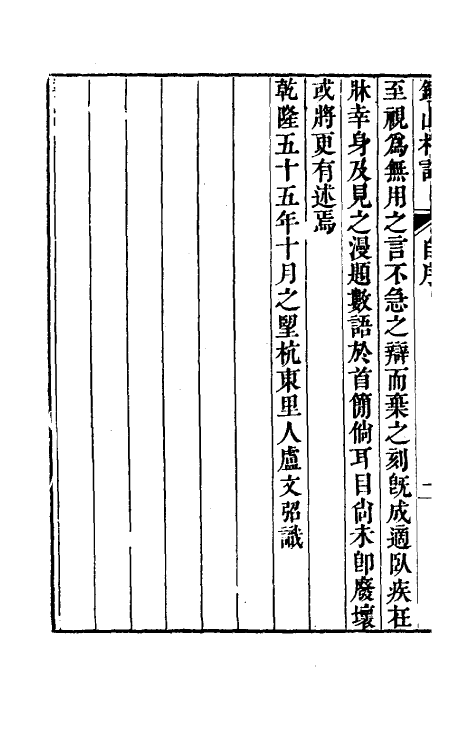 鍾山札記 自序 二
至視爲無用之言不急之辯而棄之刻旣成適臥疾在
牀幸身及見之漫題數語於首簡倘耳目尙未卽廢壞
或將更有述焉
乾隆五十五年十月之朢杭東里人盧文弨識